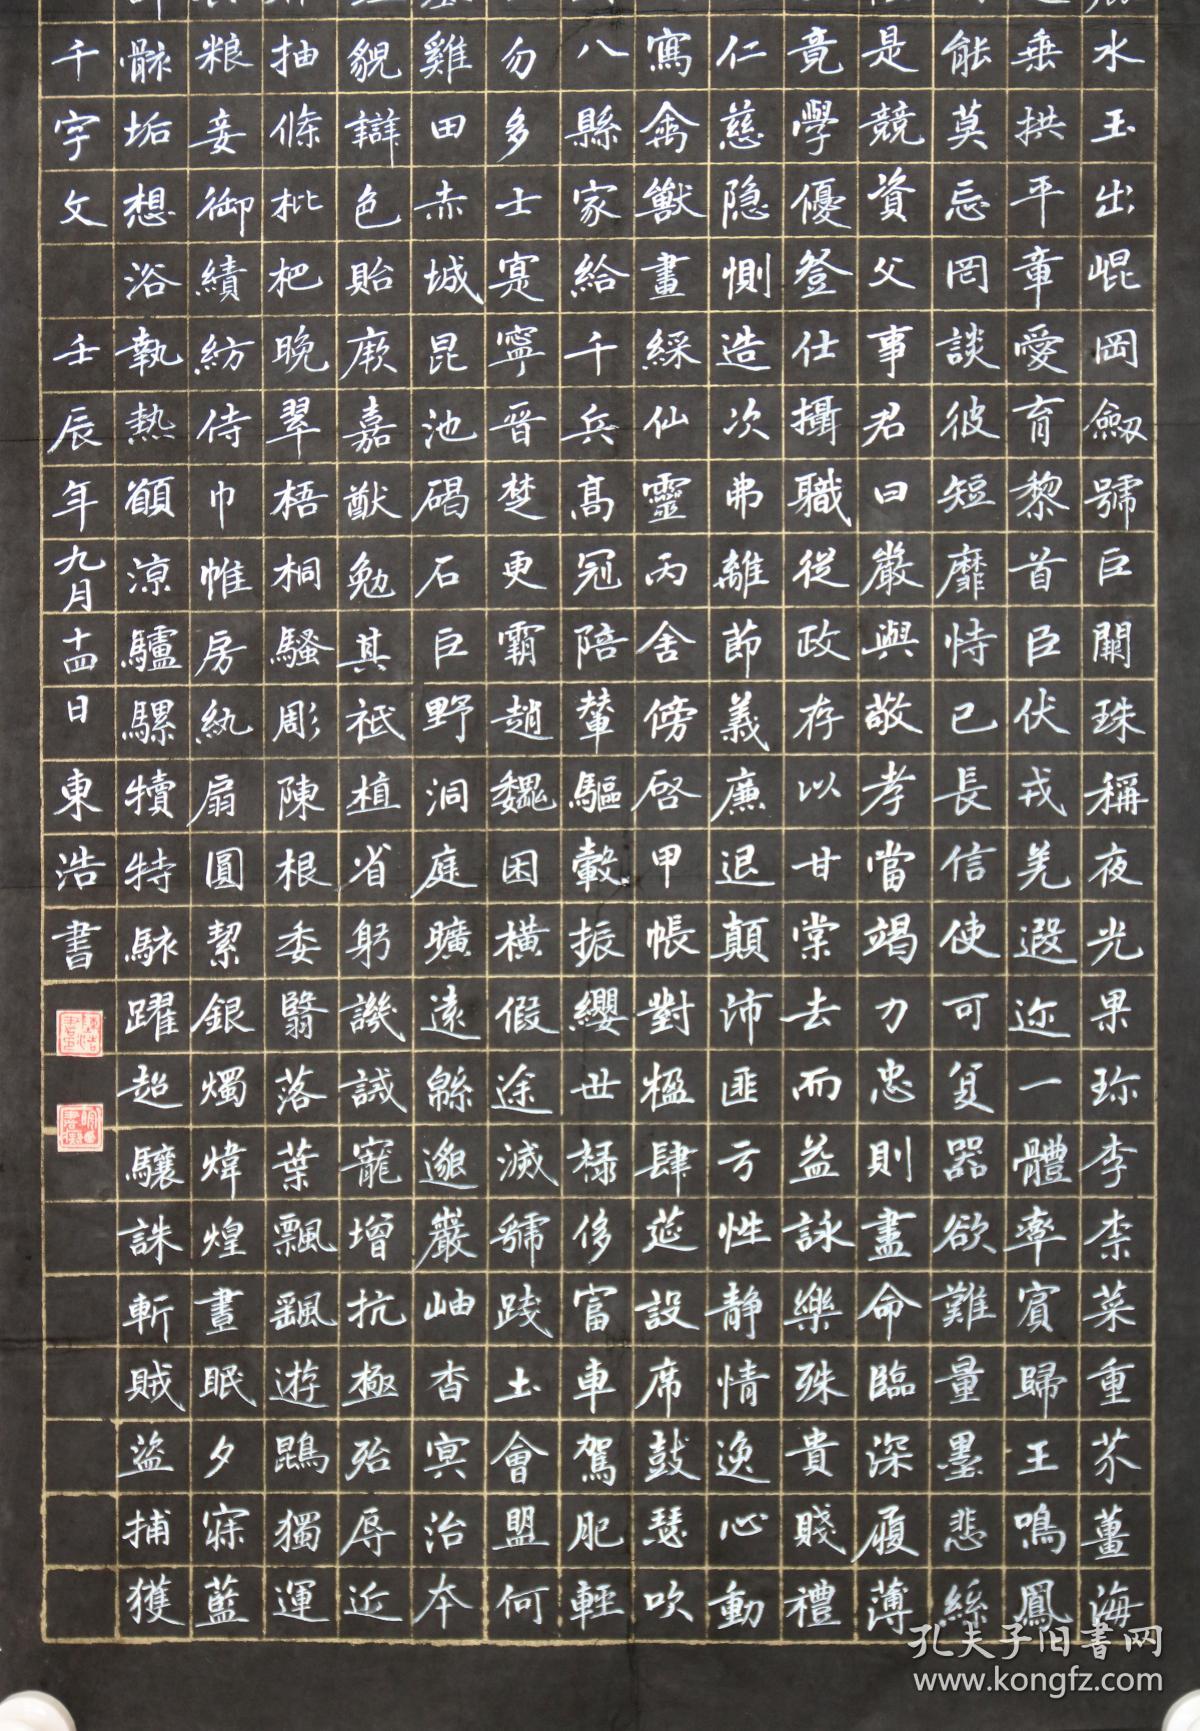 水玉出崐岡劔號巨闕珠稱夜光果珎李柰菜重芥薑海
垂拱平章愛育黎首臣伏戎羌遐迩一體率賓歸王鳴鳳
能莫忘罔談彼短靡恃己長信使可复器欲難量墨悲絲
是競資父事君曰嚴與敬孝當竭力忠則盡命臨深履薄
竟學優登仕攝職從政存以甘棠去而益詠樂殊貴賤禮
仁慈隐惻造次弗離節義廉退顛沛匪亏性静情逸心動
寫禽獸畫綵仙靈丙舍傍啓甲帳對楹肆莚設席鼓瑟吹
八縣家給千兵高冠陪輦驅轂振纓世禄侈富車駕肥輕
勿多士寔寧晋楚更霸趙魏困横假途滅虢踐土會盟何
雞田赤城昆池碣石巨野洞庭曠遠緜邈巖岫杳冥治本
貌辯色貽厥嘉猷勉其祗植省躬譏誡寵增抗極殆辱近
抽條枇杷晚翠梧桐騷彫陳根委翳落葉飄飖遊鵾獨運
粮妾御績紡侍巾帷房紈扇圓絜銀燭煒煌晝眠夕寐藍
骸垢想浴執熱願凉驢騾犢特駭躍超驤誅斬賊盗捕獲
千字文 壬辰年九月十四日東浩書
孔夫子旧书网
www.kongfz.com